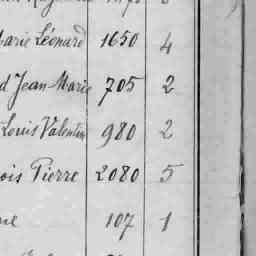 Marie Léonard 1650 4
d Jean Marie 705 2
Louis Valentin 980 2
ois Pierre 2080 5
ne 107 1